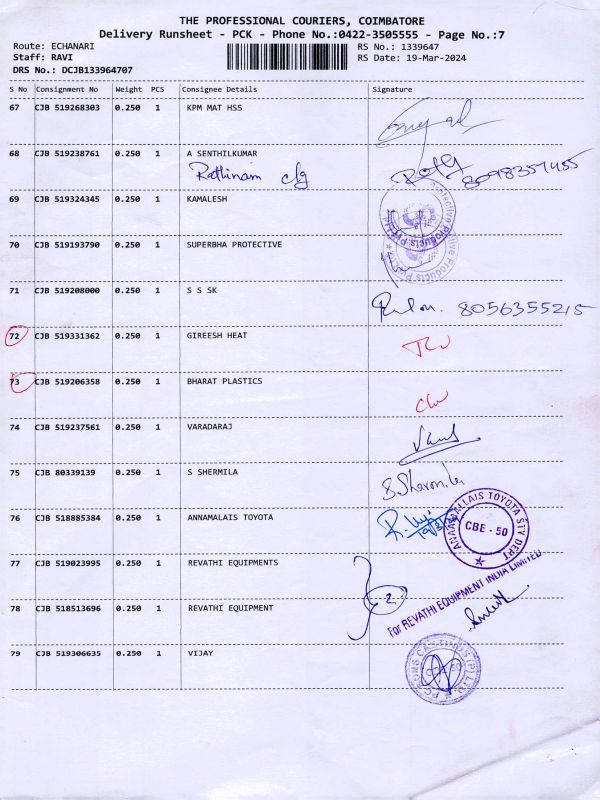 THE PROFESSIONAL COURIERS, COIMBATORE
Delivery Runsheet - PCK - Phone No.:0422-3505555 - Page No.:7
Route: ECHANARI
RS No.: 1339647
Staff: RAVI
RS Date: 19-Mar-2024
DRS No.: DCJB133964707
S No Consignment No Weight PCS Consignee Details Signature
67 CJB 519268303 0.250 1 KPM MAT HSS
68 CJB 519238761 0.250 1 A SENTHILKUMAR
Rathinam clg 8098357455
69 CJB 519324345 0.250 1 KAMALESH
70 CJB 519193790 0.250 1 SUPERBHA PROTECTIVE
Protective Products
71 CJB 519208000 0.250 1 S S SK
8056355215
72 CJB 519331362 0.250 1 GIREESH HEAT
73 CJB 519206358 0.250 1 BHARAT PLASTICS
74 CJB 519237561 0.250 1 VARADARAJ
75 CJB 80339139 0.250 1 S SHERMILA
76 CJB 518885384 0.250 1 ANNAMALAIS TOYOTA
CBE - 50
77 CJB 519023995 0.250 1 REVATHI EQUIPMENTS
2
For REVATHI EQUIPMENT INDIA LIMITED
78 CJB 518513696 0.250 1 REVATHI EQUIPMENT
79 CJB 519306635 0.250 1 VIJAY